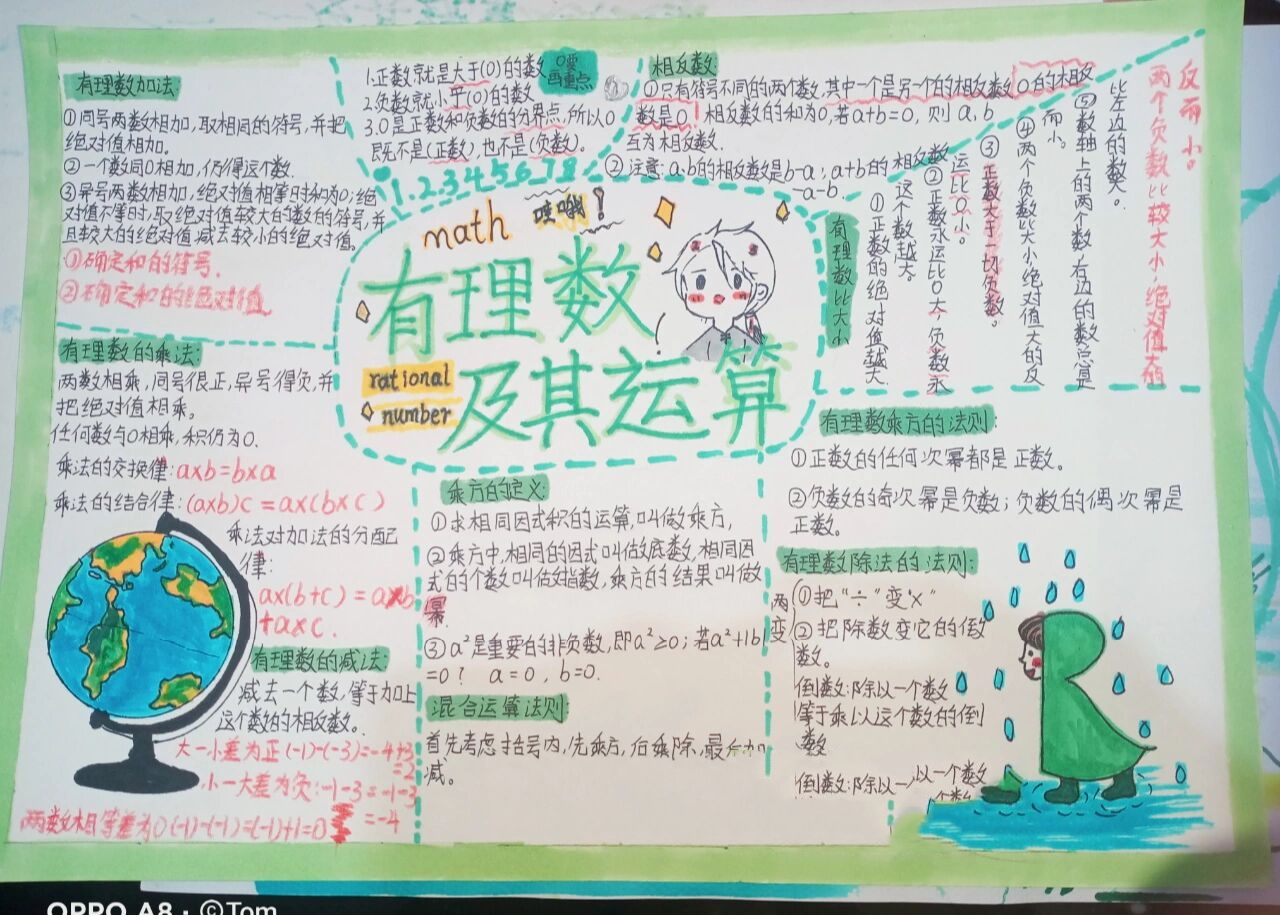 有理数加法:
①同号两数相加,取相同的符号,并把
绝对值相加。
②一个数同0相加,仍得这个数.
③异号两数相加,绝对值相等时和为0;绝
对值不等时,取绝对值较大的数的符号,并
且较大的绝对值减法较小的绝对值。
①确定和的符号.
②确定和的绝对值
1.正数就是大于(0)的数
2.负数就小于(0)的数
3.0是正数和负数的分界点,所以0
既不是(正数),也不是(负数)。
0要
画重点
1.2.3.4.5.6.7.8
相反数
①只有符号不同的两个数,其中一个是另一个的相反数,0的相反
数是0 相反数的和为0,若a+b=0, 则 a、b
互为相反数.
②注意:a-b的相反数是b-a;a+b的相反数
-a-b.
有理数比大小
①正数的绝对值越大
这个数越大。
②正数永远比0大,负数永
远比0小。
③正数大于一切负数。
④两个负数比大小绝对值大的反
而小。
⑤数轴上的两个数,右边的数总是
比左边的数大。
两个负数比较大小,绝对值大的
反而小。
math
哎哦!
有理数
及其运算
rational
number
有理数的乘法:
两数相乘,同号很正,异号得负,并
把绝对值相乘。
任何数与0相乘,积仍为0.
乘法的交换律:a×b=b×a
乘法的结合律:(a×b)c=a×(b×c)
乘法对加法的分配
律:
a×(b+c)=a×b
+a×c.
有理数的减法:
减去一个数,等于加上
这个数的相反数。
大-小差为正(-1)-(-3)=-4+3
=2
小-大差为负:-1-3=-1-3
=-4
两数相等差为0(-1)-(-1)=(-1)+1=0
乘方的定义:
①求相同因式积的运算,叫做乘方,
②乘方中,相同的因式叫做底数,相同因
式的个数叫做指数,乘方的结果叫做
幂.
③a²是重要的非负数,即a²≥0;若a²+|b|
=0? a=0,b=0.
混合运算法则:
首先考虑括号内,先乘方,后乘除,最后加
减。
有理数乘方的法则:
①正数的任何次幂都是正数。
②负数的奇次幂是负数;负数的偶次幂是
正数。
有理数除法的法则:
两变
①把"÷"变"×"
②把除数变它的倒
数。
倒数:除以一个数
等于乘以这个数的倒
数
倒数:除以一
以一个数
个数
OPPO A8 · ©Tom